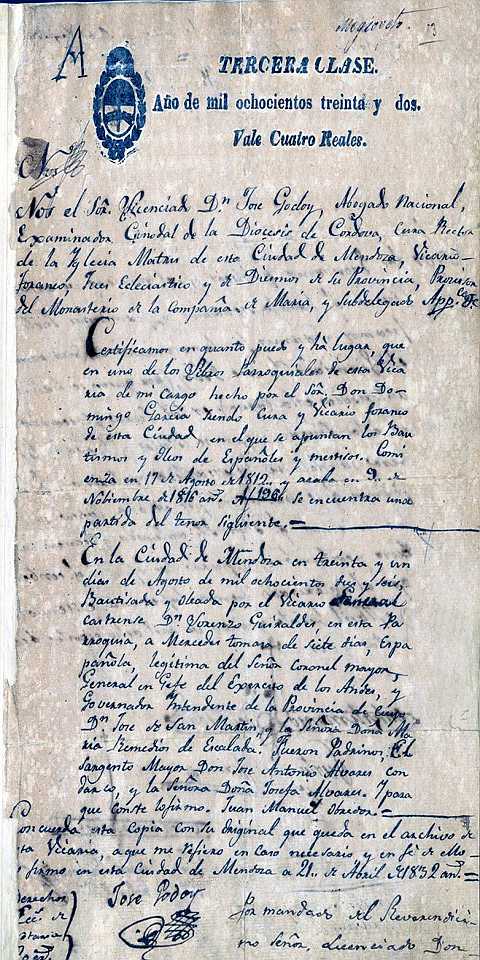 A
TERCERA CLASE.
Año de mil ochocientos treinta y dos.
Vale Cuatro Reales.
Nos el Sor. Licenciado Dn. Jose Godoy, Abogado Nacional,
Examinador Cinodal de la Diocesis de Cordova, Cura Rector
de la Yglecia Matris de esta Ciudad de Mendoza, Vicario
foraneo Jues Ecleciastico y de Diesmos de su Provincia, Provisor
del Monasterio de la Compañia de Maria, y Subdelegado
Certificamos en quanto puedo y há lugar, que
en uno de los Libros Parroquiales de esta Vica
ria de mi cargo hecho por el Sor. Don Do-
mingo Garcia siendo Cura y Vicario foraneo
de esta Ciudad, en el que se apuntan los Bau
tismos y Oleos de Españoles y mestisos. Comi
enza en 17 de Agosto de 1812, y acaba en 9. de
Nobiembre de 1816 an. se encuentra una
partida del tenor siguiente.=
En la Ciudad de Mendoza en treinta y un
dias de Agosto de mil ochocientos dies y seis,
Bautisada y oleada por el Vicario General
castrense, Dn. Lorenzo Guiraldes en esta Pa
rroquia, a Mercedes tomasa de siete dias, Espa
pañola, legitima del Señor Coronel mayor,
General en Gefe del Exercito de los Andes, y
Governador Intendente de la Provincia de Cuyo
Dn. Jose de San Martin, y la Señora Doña Ma
ria Remedios de Escalada. Fueron Padrinos, El
Sargento Mayor Don Jose Antonio Alvares con
darco, y la Señora Doña Josefa Alvares. Y para
que conste lo firmo. Juan Manuel Obredor.=
Concuerda esta Copia con su Original que queda en el archivo de
esta Vicaria, a que me refiero en caso necesario y en fé de ello
firmo en esta Ciudad de Mendoza a 21. de Abril de 1832 an.=
Jose Godoy
Por mandado del Reverendici-
mo Señor, Licenciado Don-